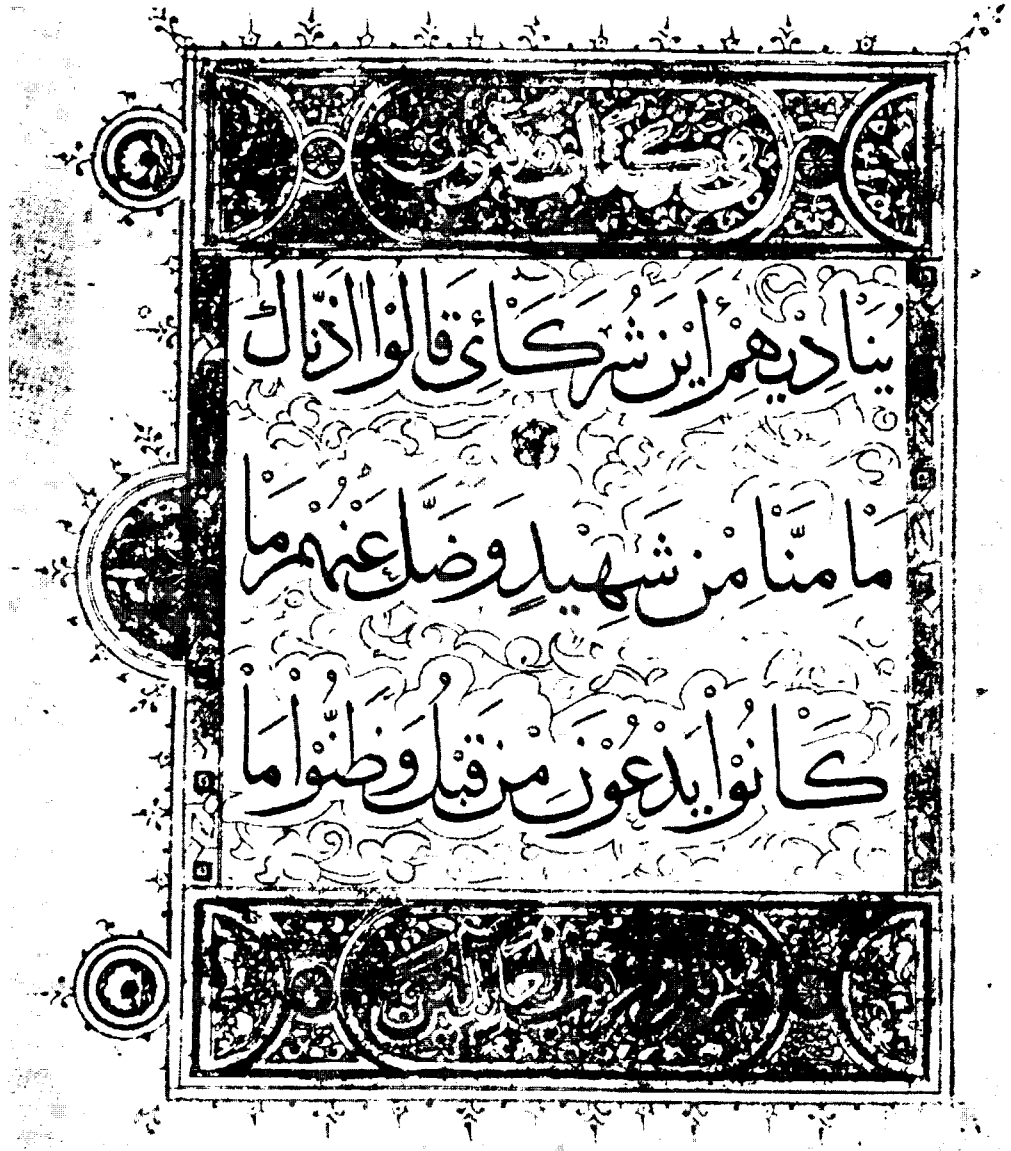 في كتاب مكنون
يُنَادِيْهِمْ أَيْنَ شُرَكَائِى قَالُوْا اٰذَنَّاكَ
مَا مِنَّا مِنْ شَهِيْدٍ وَضَلَّ عَنْهُمْ مَا
كَانُوْا يَدْعُوْنَ مِنْ قَبْلُ وَظَنُّوْا مَا
رب العالمين